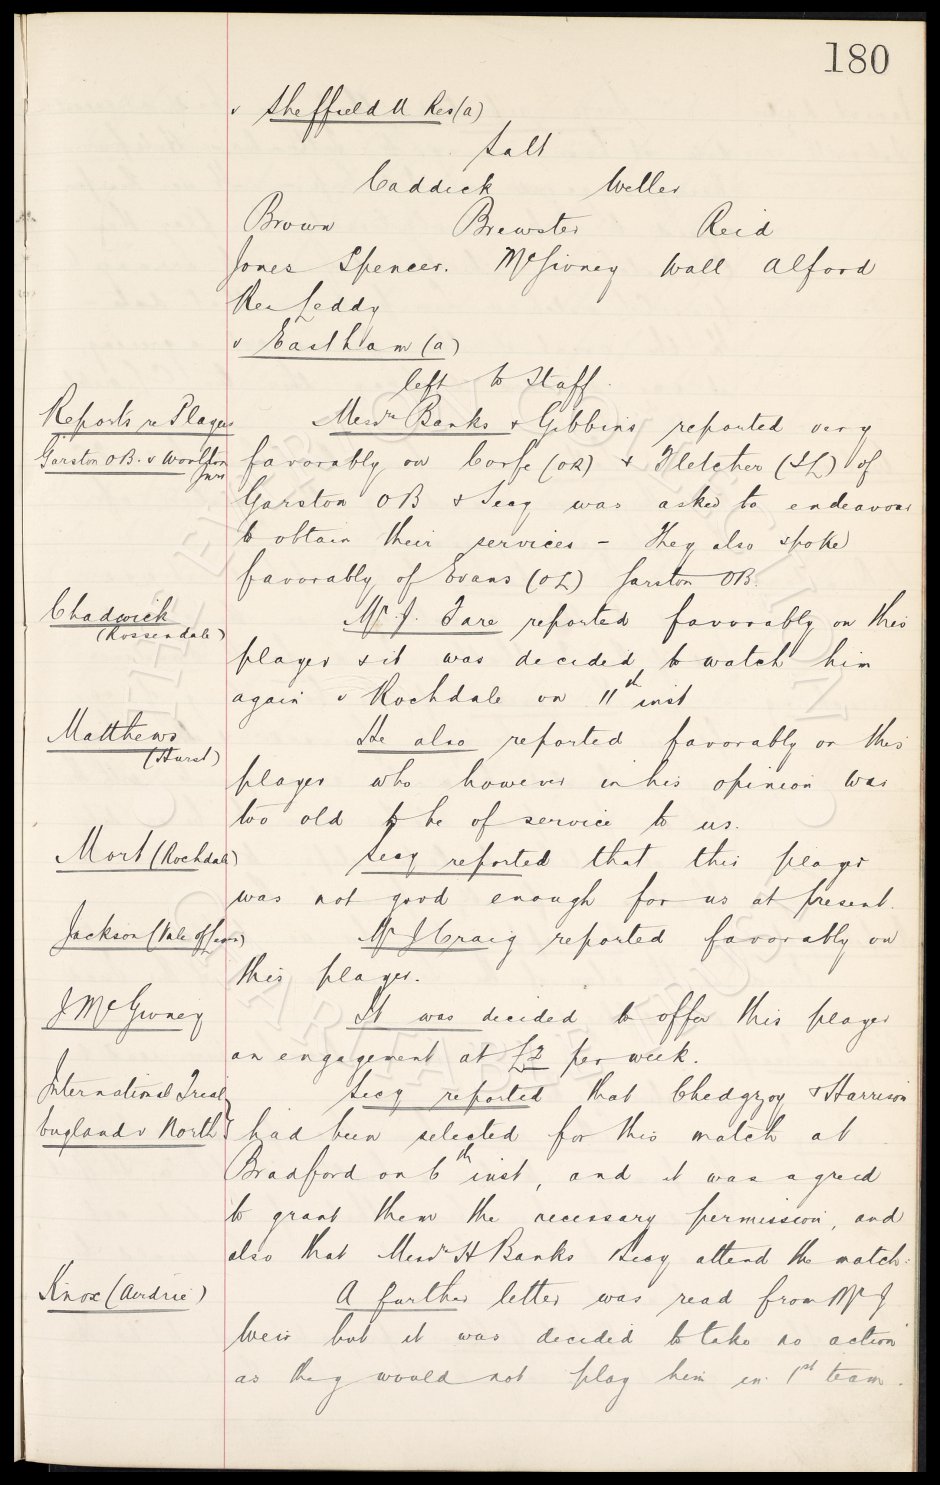 180
v Sheffield U Res (a)
Salt
Caddick Weller
Brown Brewster Reid
Jones Spencer. McGivney Wall Alford
Res Leddy
v Eastham (a)
left to Staff.
Reports re Players
Messrs Banks & Gibbins reported very
Garston O B. v Woolton Jnrs
favorably on Corfe (OR) & Fletcher (IL) of
Garston OB & Secy was asked to endeavour
to obtain their services - They also spoke
favorably of Evans (OL) Garston OB.
Chadwick
(Rossendale)
Mr J. Tare reported favorably on this
player & it was decided to watch him
again v Rochdale on 11th inst
Matthews
(Hurst)
He also reported favorably on this
player who however in his opinion was
too old to be of service to us.
Mort (Rochdale)
Secy reported that this player
was not good enough for us at present.
Jackson (Vale of Leven)
Mr J Craig reported favorably on
this player.
J McGivney
It was decided to offer this player
an engagement at £2 per week.
International Trial
Secy reported that Chedgzoy & Harrison
England v North
had been selected for this match at
Bradford on 6th inst, and it was agreed
to grant them the necessary permission, and
also that Messrs H Banks Secy attend the match.
Knox (Airdrie)
A further letter was read from Mr J
Weir but it was decided to take no action
as they would not play him in 1st team.
THE EVERTON COLLECTION
CHARITABLE TRUST